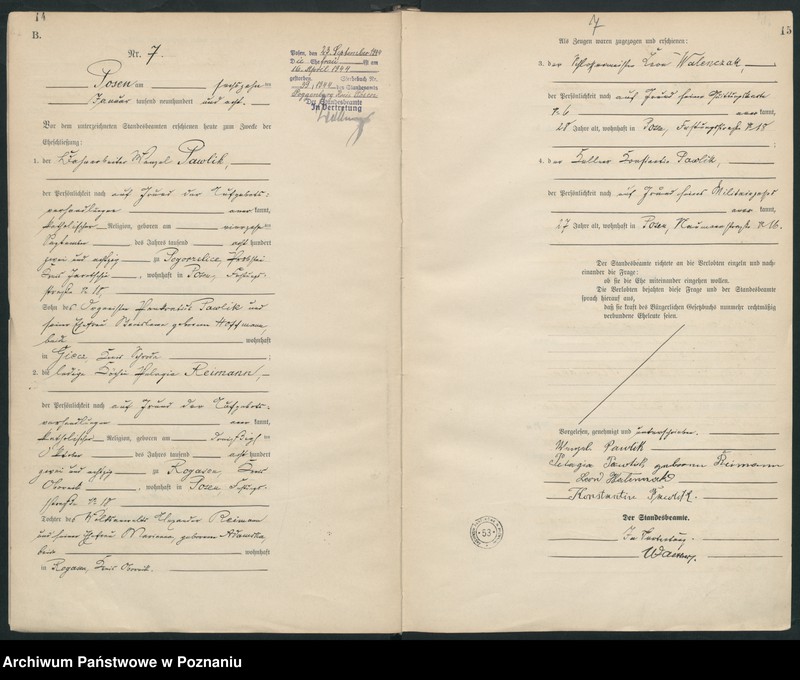 14
B.
Nr. 7.
Posen, den 23. September 1944
Die Ehefrau ist am
16. April 1944
gestorben. Sterbebuch Nr.
des Standesamts
Der Standesbeamte
In Vertretung
Posen am sechszehnten
Januar tausend neunhundert und acht.
Vor dem unterzeichneten Standesbeamten erschienen heute zum Zwecke der
Eheschließung:
1. der Wenzel Pawlik,
der Persönlichkeit nach auf Grund der Aufgebots-
verhandlungen aner kannt,
katholischer Religion, geboren am vierzehnten
September des Jahres tausend acht hundert
zwei und achtzig zu Pogorzelice,
Kreis Jarotschin, wohnhaft in Posen, Festungs-
straße N. 18,
Sohn des Pawlik und
seiner Ehefrau geborenen Hoffmann,
beide wohnhaft
in Giecz, Kreis Schroda;
2. die ledige Tochter Pelagia Reimann,
der Persönlichkeit nach auf Grund der Aufgebots-
verhandlungen aner kannt,
katholischer Religion, geboren am dreißigsten
Oktober des Jahres tausend acht hundert
zwei und achtzig zu Rogasen, Kreis
Obornik, wohnhaft in Posen, Festungs-
straße N. 18
Tochter des Alexander Reimann
und seiner Ehefrau Marianna, geborenen Adamska,
beide wohnhaft
in Rogasen, Kreis Obornik.
7
15
Als Zeugen waren zugezogen und erschienen:
3. der Schlossermeister Leon Walenczak,
der Persönlichkeit nach auf Grund seiner Quittungskarte
N. 6 aner kannt,
28 Jahre alt, wohnhaft in Posen, Festungsstraße N. 18
;
4. der Kellner Konstantin Pawlik,
der Persönlichkeit nach auf Grund seines Militärpasses
aner kannt,
27 Jahre alt, wohnhaft in Posen, Naumannstraße N. 16.
Der Standesbeamte richtete an die Verlobten einzeln und nach-
einander die Frage:
ob sie die Ehe miteinander eingehen wollen.
Die Verlobten bejahten diese Frage und der Standesbeamte
sprach hierauf aus,
daß sie kraft des Bürgerlichen Gesetzbuchs nunmehr rechtmäßig
verbundene Eheleute seien.
Vorgelesen, genehmigt und unterschrieben.
Wenzel Pawlik
Pelagia Pawlik geborene Reimann
Leon Walenczak
Konstantin Pawlik.
Der Standesbeamte.
In Vertretung.
53
Archiwum Państwowe w Poznaniu